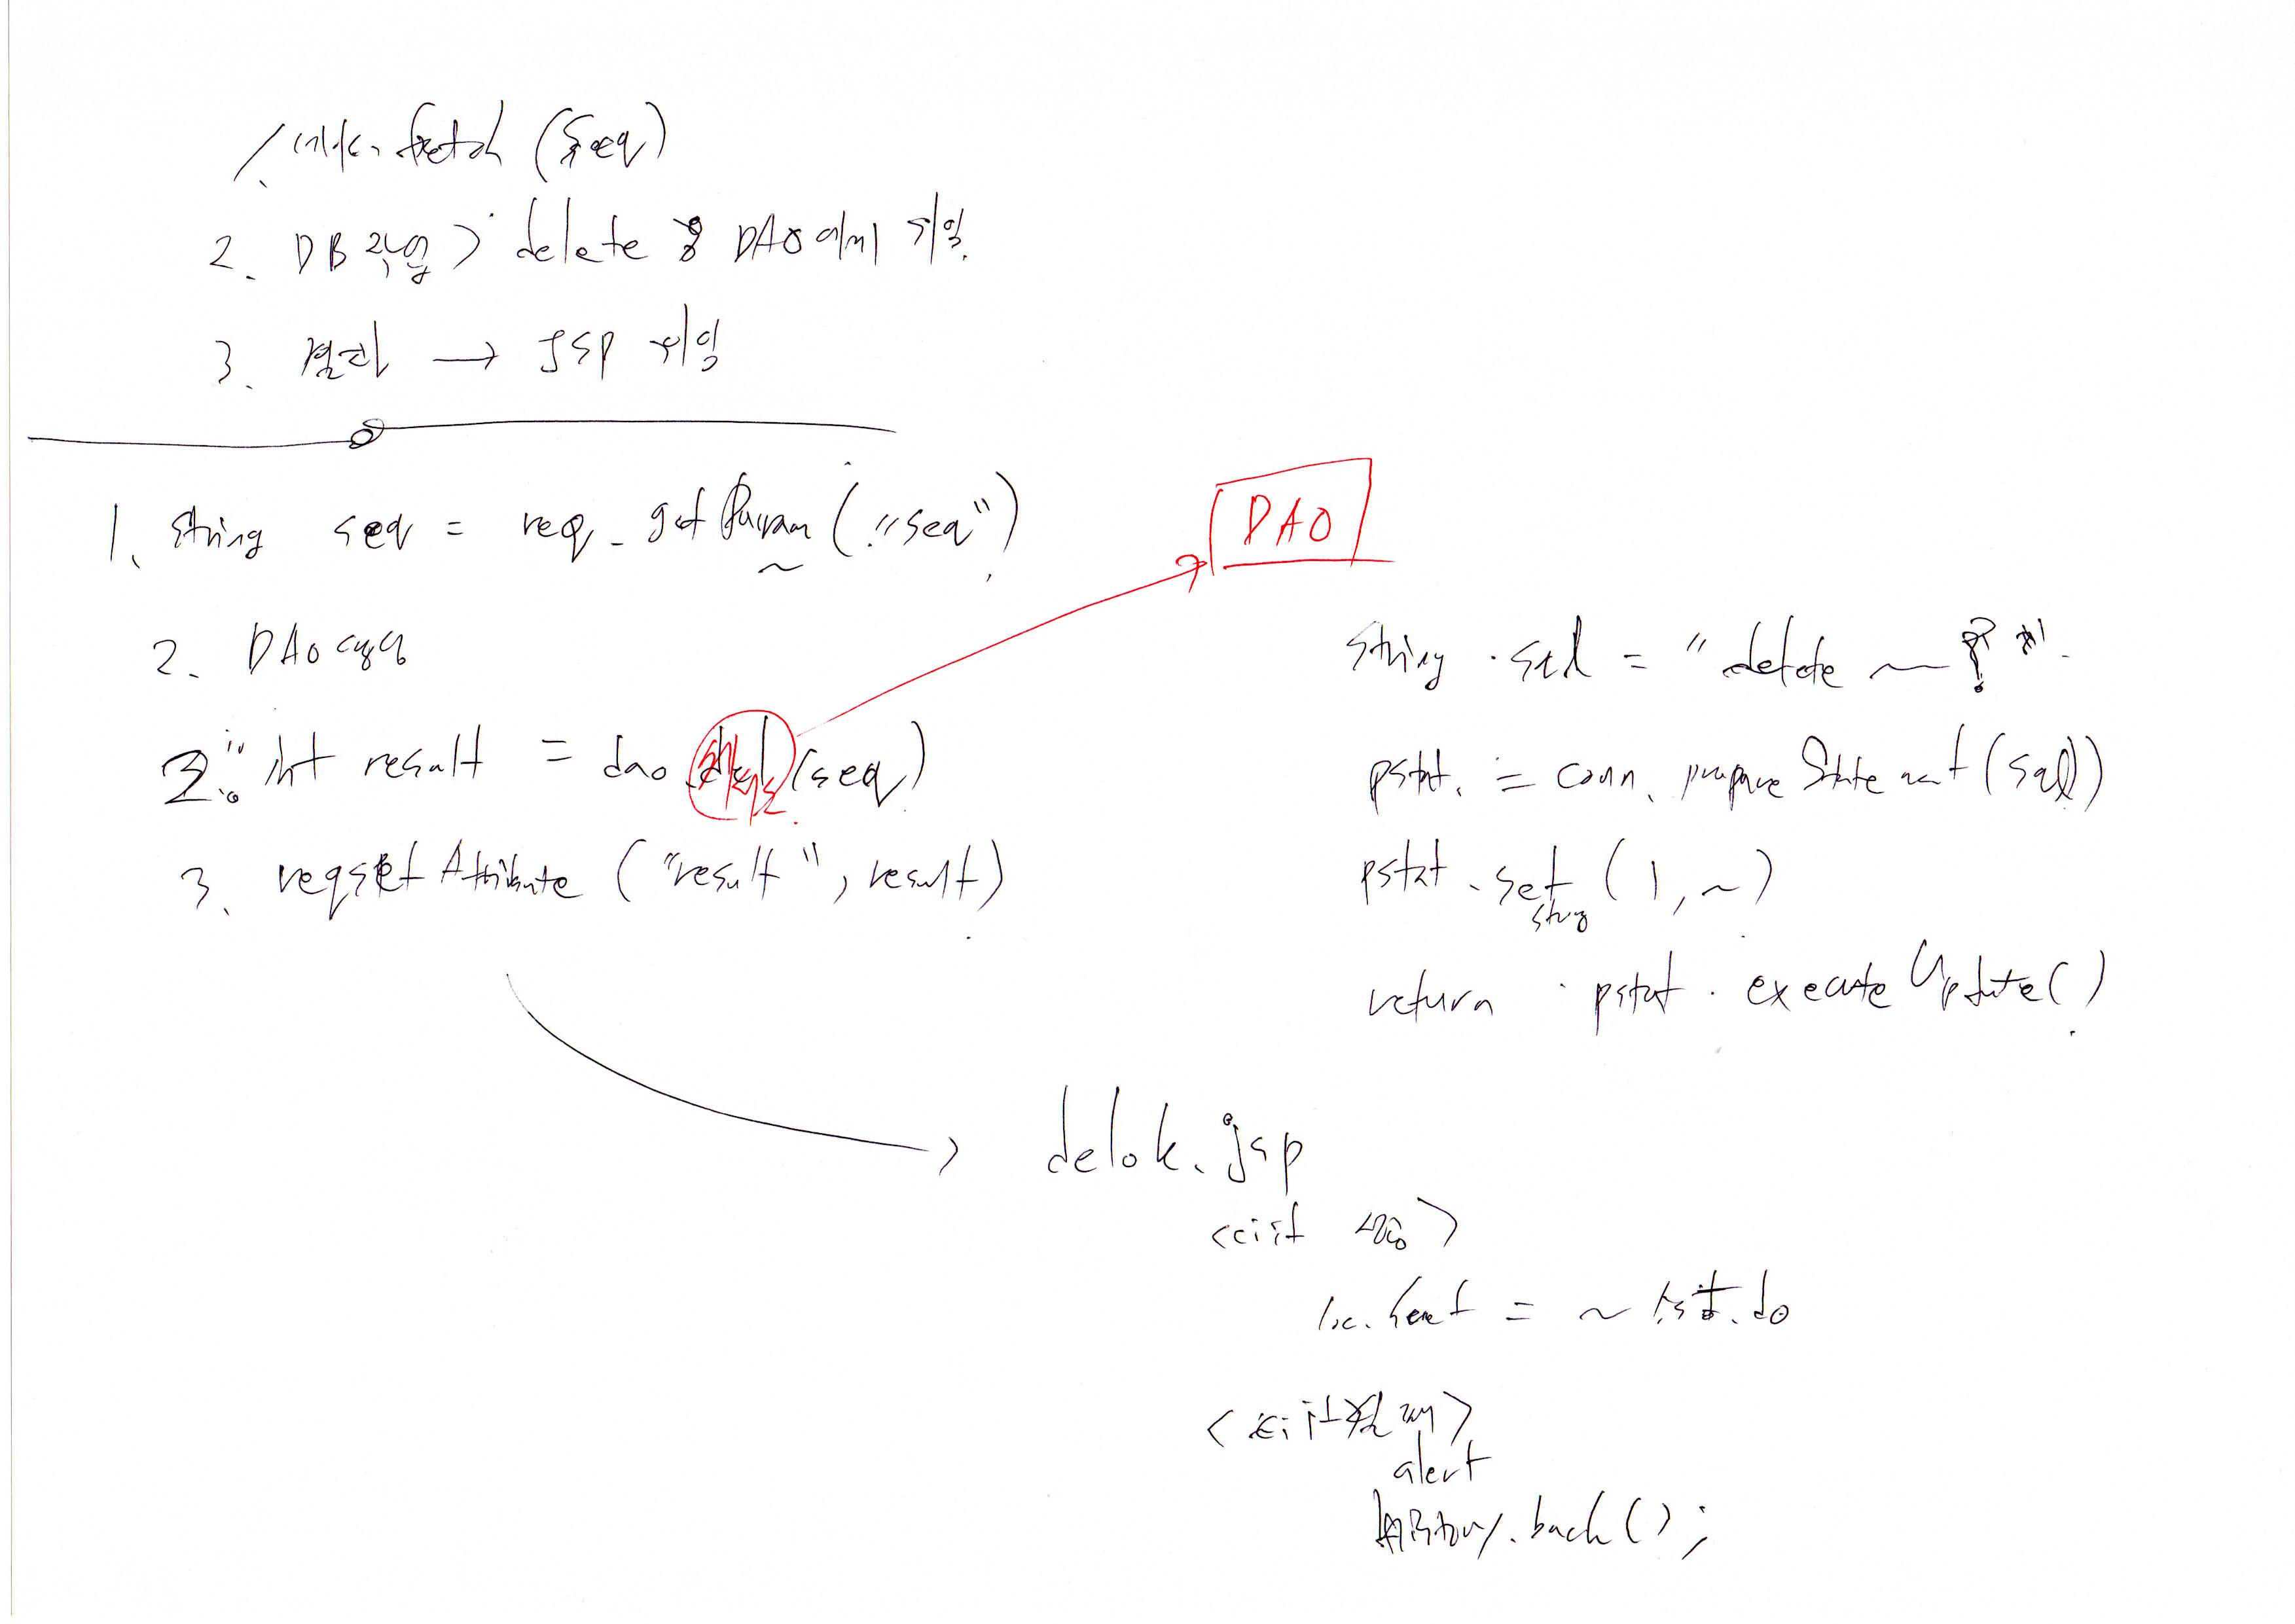 1. 데이터 fetch (seq)
2. DB작업 > delete 용 DAO에게 위임.
3. 결과 → jsp 위임
1. String seq = req. getParam ("seq")
2. DAO 생성
2. int result = dao. del (seq)
3. req.setAttribute ("result", result)
DAO
String sql = "delete ~ ? "
pstat. = conn. prepareStatement (sql)
pstat. set (1, ~)
string
return pstat. executeUpdate()
delok. jsp
<c if >
loc. href = ~ list.do
alert
history. back();